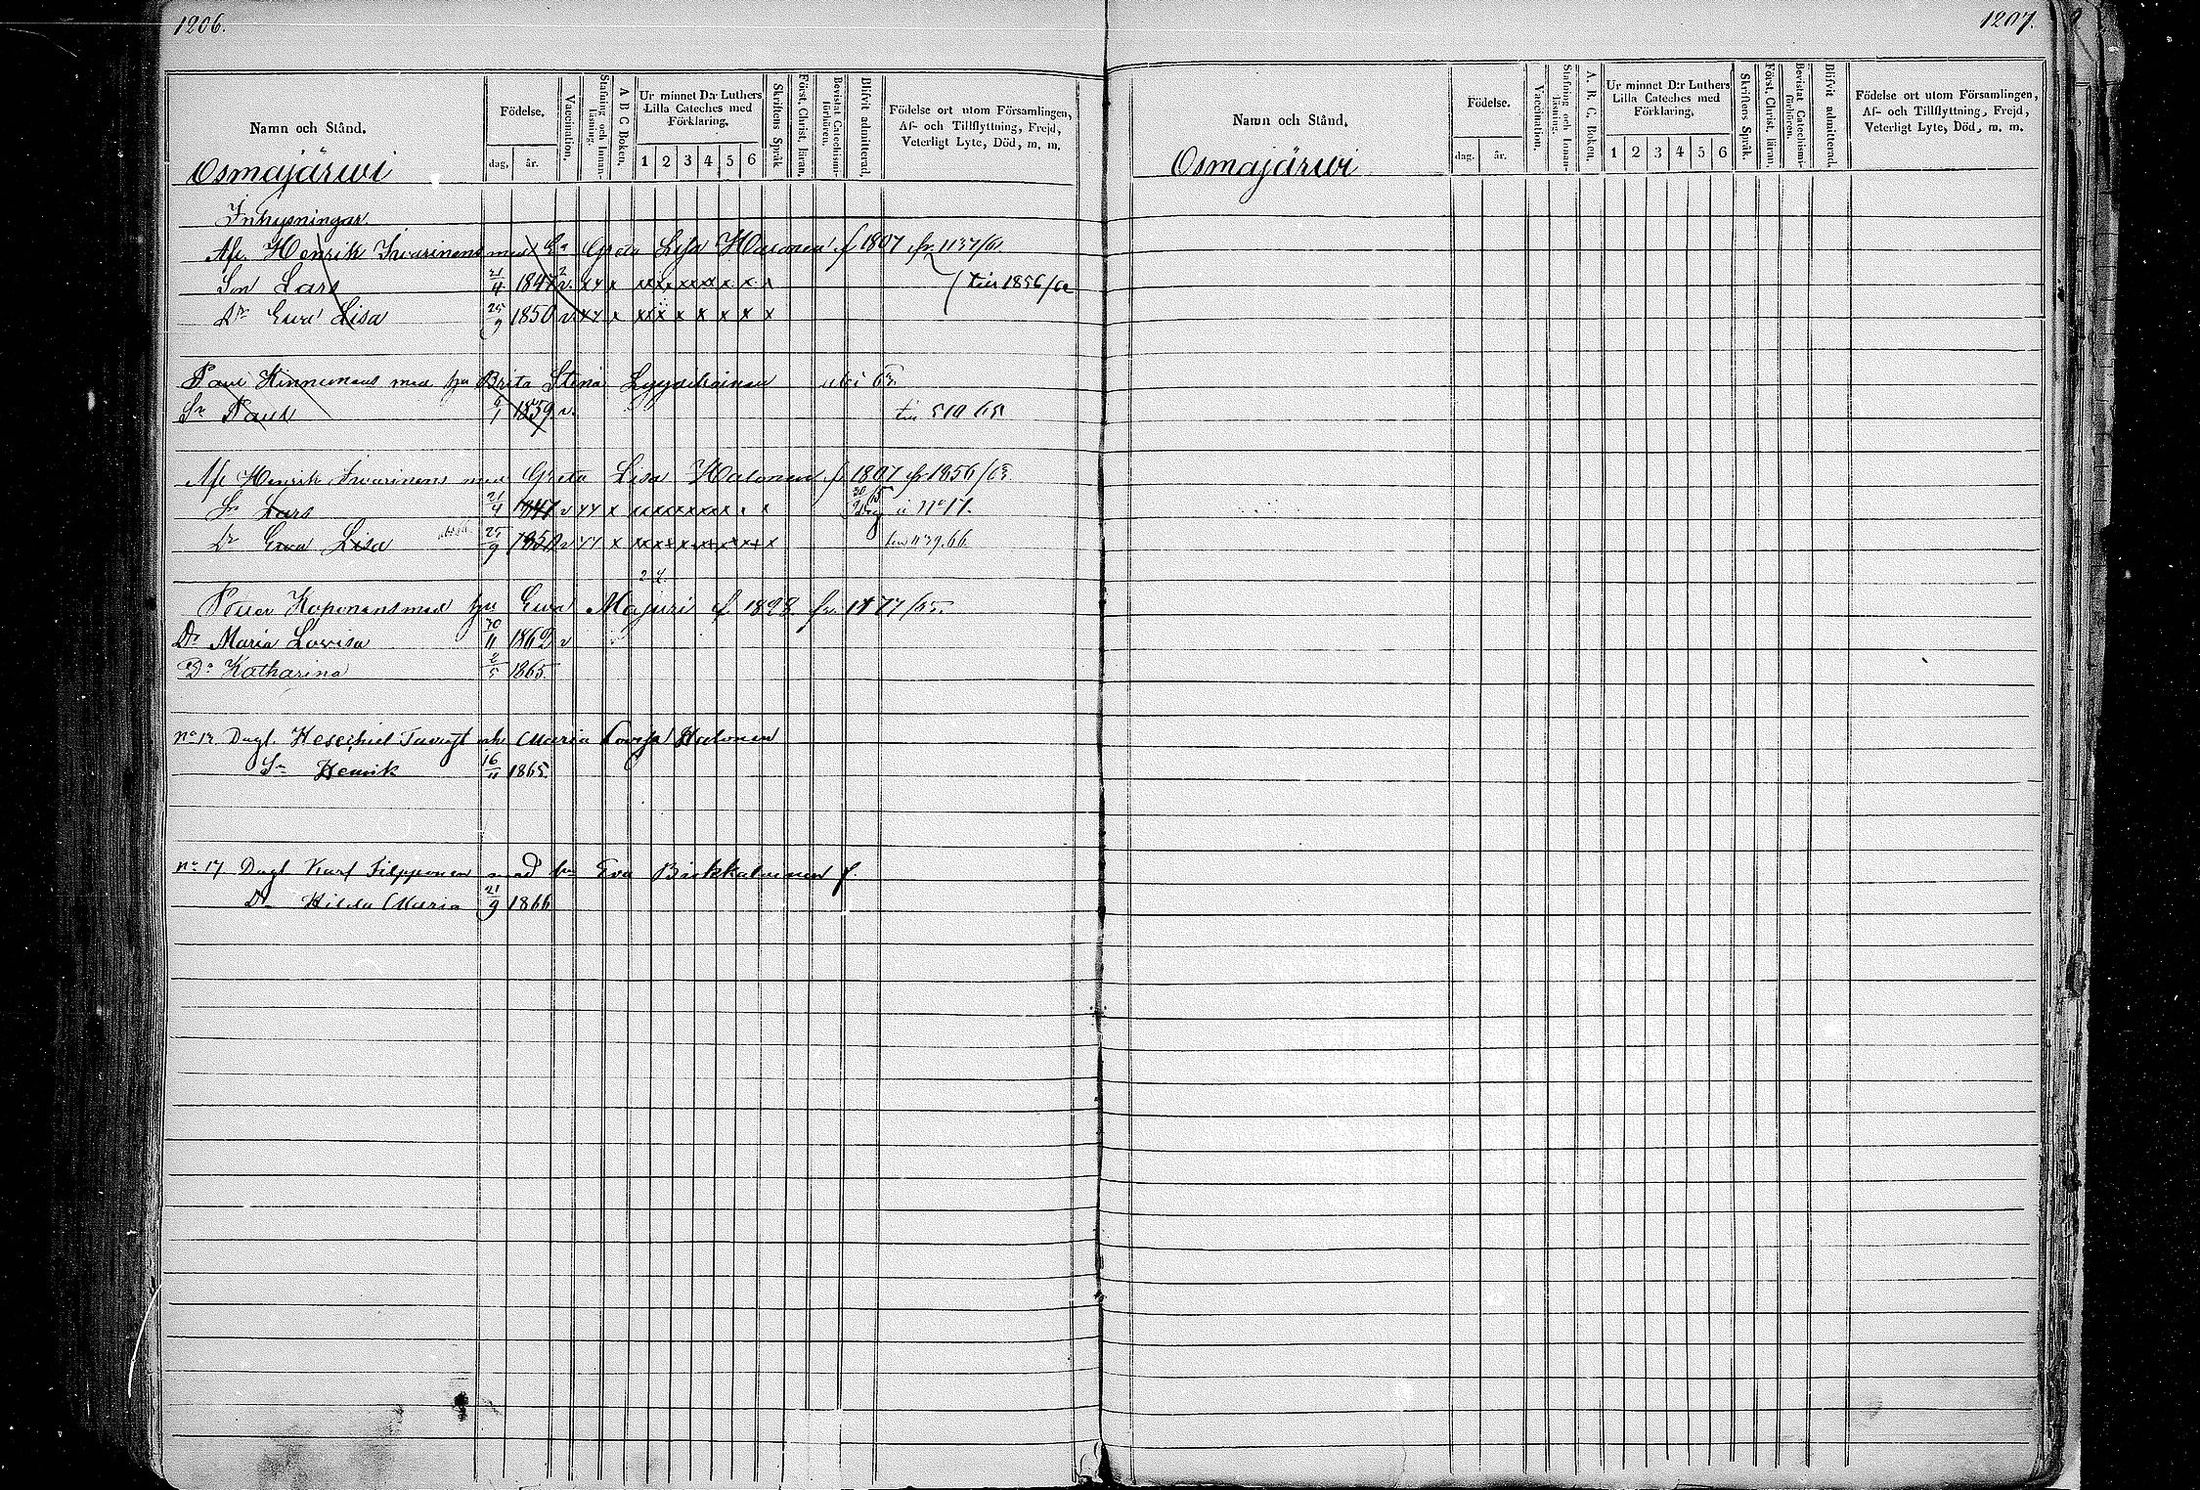 1206.
Namn och Stånd.
Födelse.
dag, år.
Vaccination,
Stafning och Innanläsning.
A B C Boken.
Ur minnet D:r Luthers Lilla Cateches med Förklaring.
1 2 3 4 5 6
Skriftens Språk
Först. Christ. läran.
Bevistat Catechismiförhören.
Blifvit admitterad.
Födelse ort utom Församlingen, Af- och Tillflyttning, Frejd, Veterligt Lyte, Död, m. m.
Osmajärwi
Inhysningar
Afl. Henrik Iwarinens Greta Lisa Halonen f 1807 fr. 1137/61
Son Lars 21/4 1847 v. xx x xxxxxxx x x till 1856/62
Dr Ewa Lisa 25/9 1850 v xx x xxx x x x x x
Paul Kinnunens med hu Brita Stina
Sn Paul 6/1 1859 v. till 510 65
Afl Henrik Iwarinens Greta Lisa Halonen f 1807 fr 1856/63
Sn Lars 21/4 1847 v xx x No 17.
Dr Ewa Lisa 25/9 1850 v xx x 66
Koponens med hu Ewa Majuri f. 1828 1177/65.
Dr Maria Lovisa 30/11 1862 v
Dr Katharina 2/5 1865.
No 17 Dagl. Hesekiel Maria Lovisa Halonen
Sn Henrik 16/11 1865.
No 17 Dagl Karl Filpponen med hu Eva f.
Dr Hilda Maria 21/9 1866
1207.
Namn och Stånd.
Födelse.
dag. år.
Vaccination.
Stafning och Innanläsning.
A. B. C. Boken.
Ur minnet D:r Luthers Lilla Cateches med Förklaring.
1 2 3 4 5 6
Skriftens Språk.
Först. Christ. läran.
Bevistat Catechismiförhören.
Blifvit admitterad.
Födelse ort utom Församlingen, Af- och Tillflyttning, Frejd, Veterligt Lyte, Död, m. m.
Osmajärwi